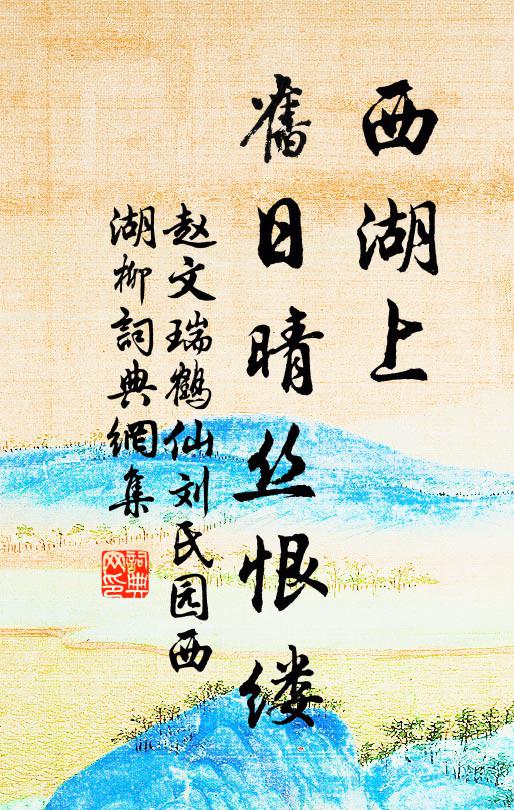 西湖上
舊日晴丝恨缕
赵文瑞鹤仙刘氏园西
湖柳词典網集
詞典
网印